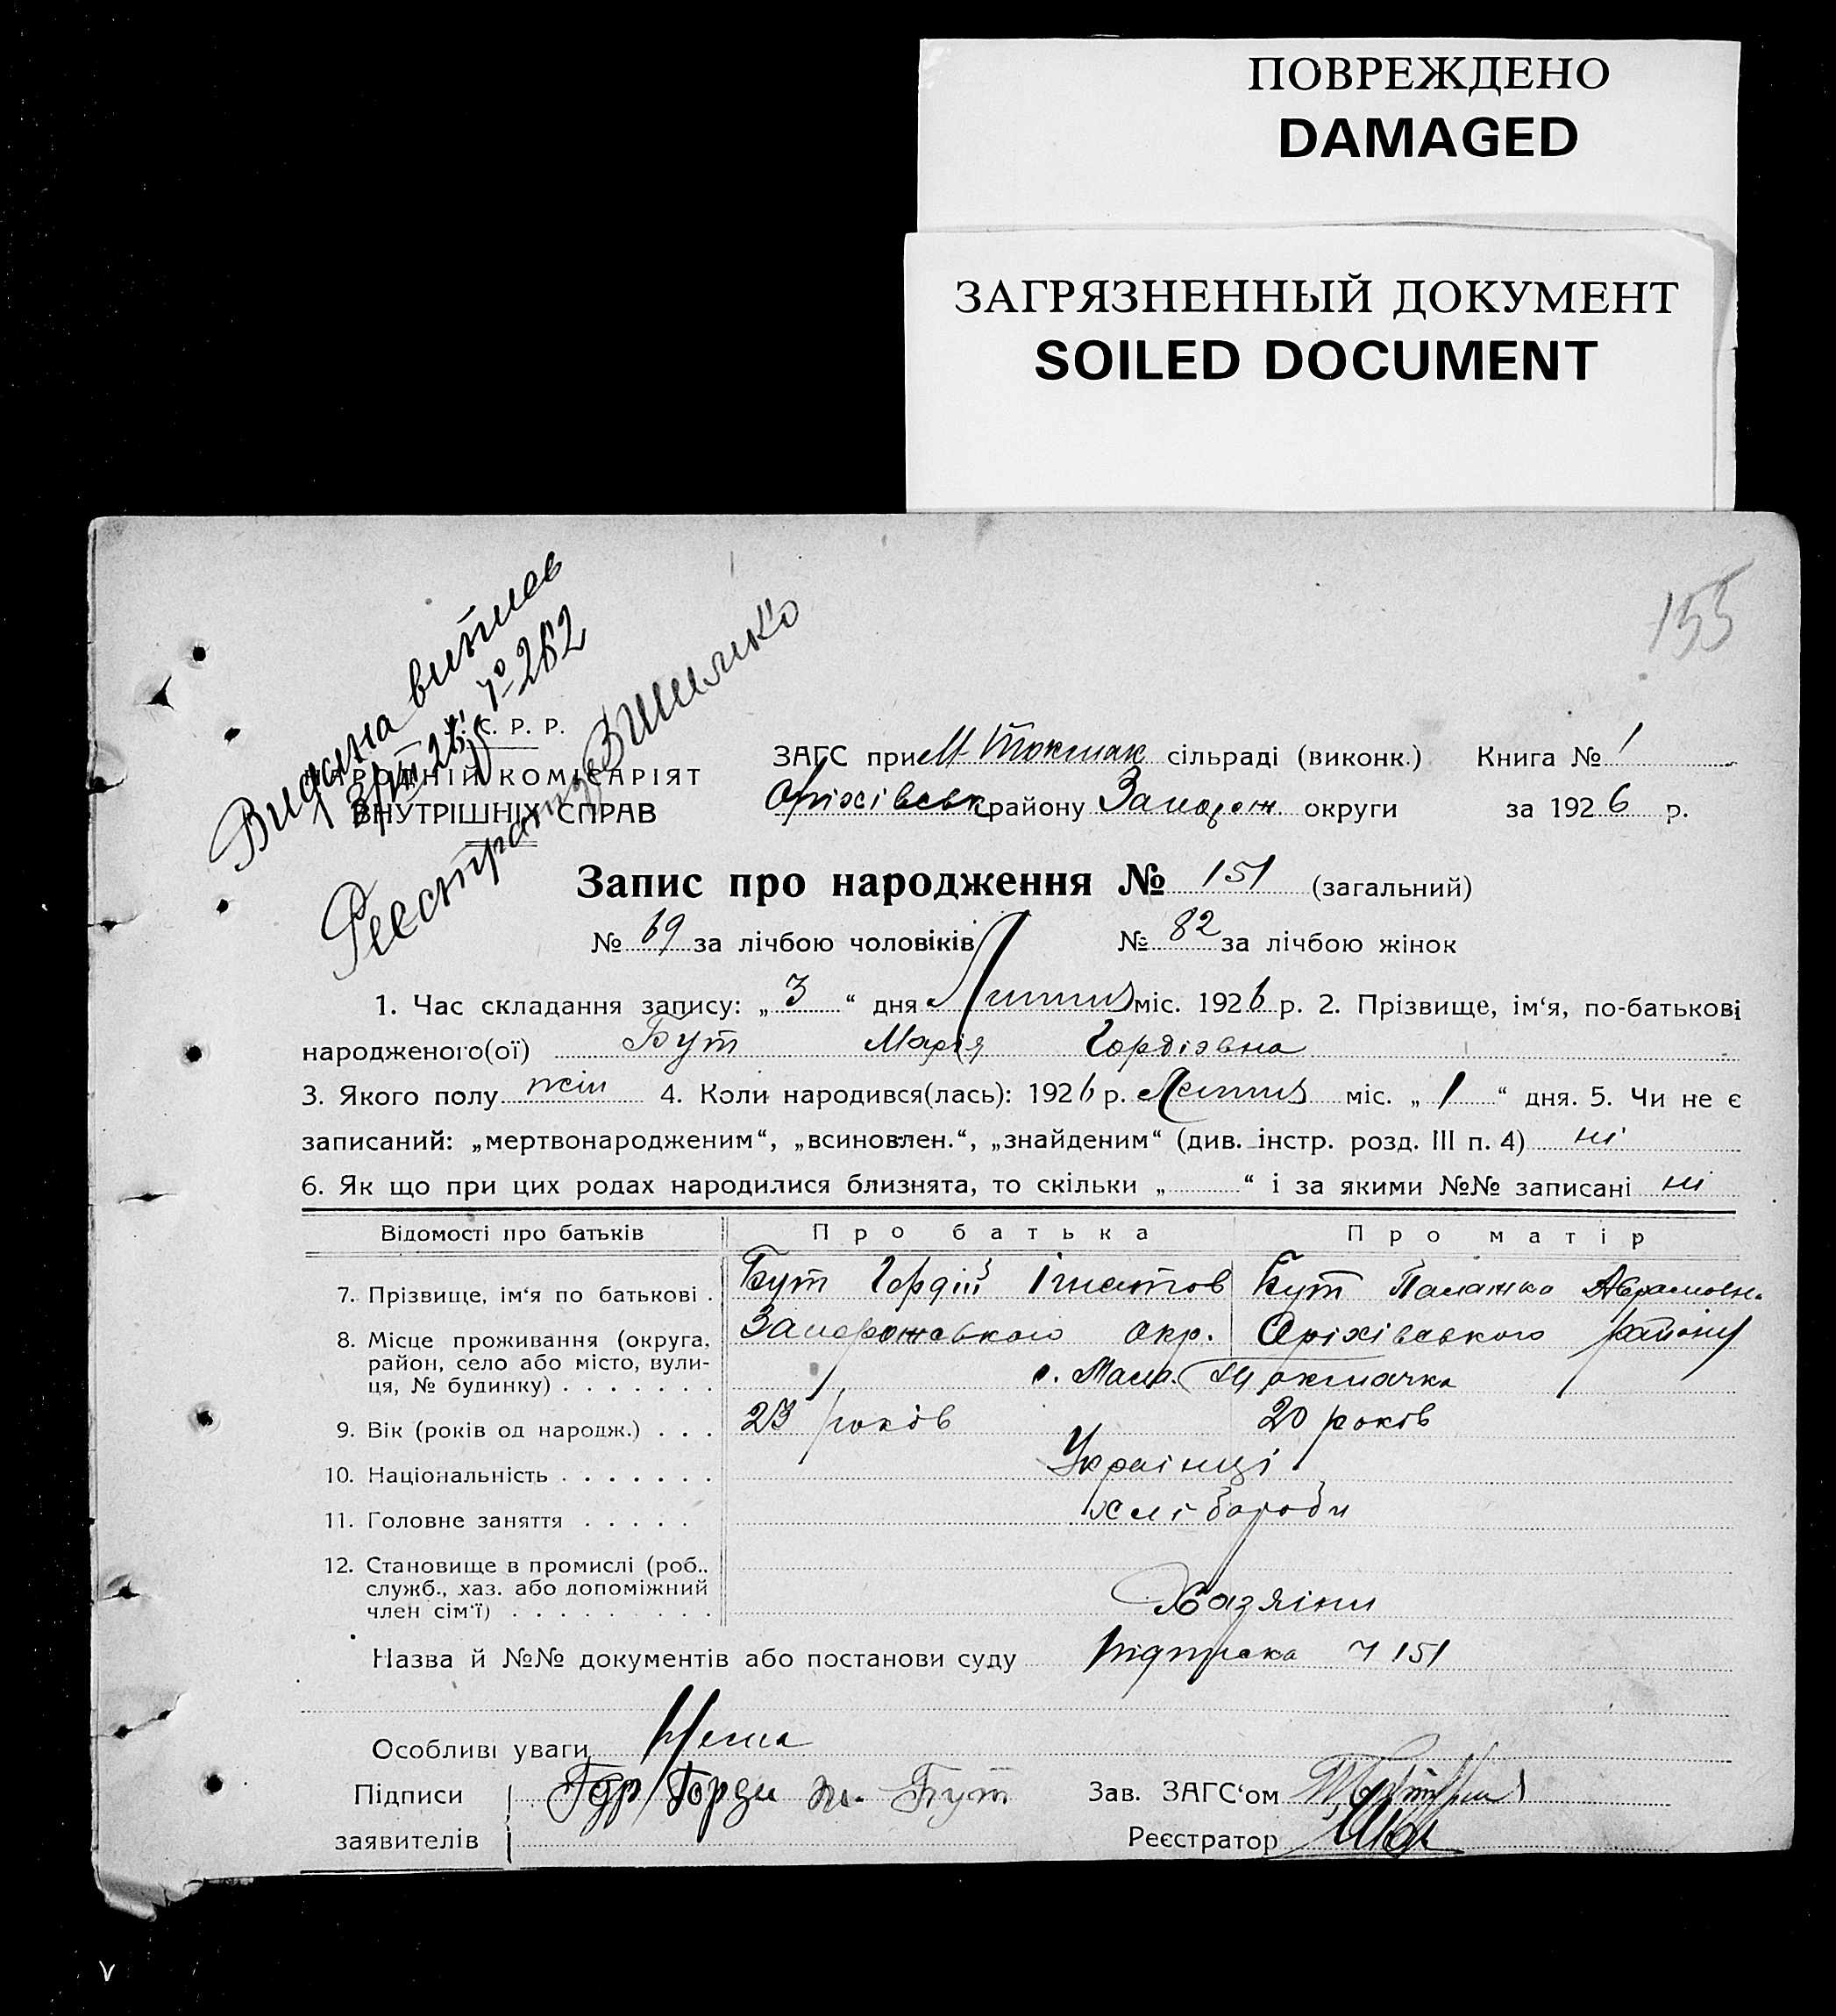 ПОВРЕЖДЕНО
DAMAGED
ЗАГРЯЗНЕННЫЙ ДОКУМЕНТ
SOILED DOCUMENT
155
Видана витись
262
Реєстратор
С. Р. Р.
НАРОДНІЙ КОМІСАРІЯТ
ВНУТРІШНІХ СПРАВ
ЗАГС при М Токмак сільраді (виконк.) Книга № 1
Оріхівськ району Запорож округи за 1926 р.
Запис про народження № 151 (загальний)
№ 69 за лічбою чоловіків № 82 за лічбою жінок
1. Час складання запису: „3“ дня Липня міс. 1926 р. 2. Прізвище, ім‘я, по-батькові
народженого(ої) Бут Марія Гордієвна
3. Якого полу жін 4. Коли народився(лась): 1926 р. Липня міс. „1“ дня. 5. Чи не є
записаний: „мертвонародженим“, „всиновлен.“, „знайденим“ (див. інстр. розд. III п. 4) ні
6. Як що при цих родах народилися близнята, то скільки „ “ і за якими №№ записані ні
Відомості про батьків Про батька Про матір
7. Прізвище, ім‘я по батькові . Бут Гордій Ігнатов Бут Палажка Аврамовн.
8. Місце проживання (округа, Запорожського окр. Оріхівського району
район, село або місто, вули-
ця, № будинку) . . . . . . . с. Мала Токмачка
9. Вік (років од народж.) . . . 23 років 20 років
10. Національність . . . . . . . Українці
11. Головне заняття . . . . . хлібороби
12. Становище в промислі (роб..
служб., хаз. або допоміжний
член сім‘ї) . . . . . . . . . Хазяіни
Назва й №№ документів або постанови суду Підписка 151
Особливі уваги Нема
Підписи Горди Бут Зав. ЗАГС‘ом
заявителів Реєстратор